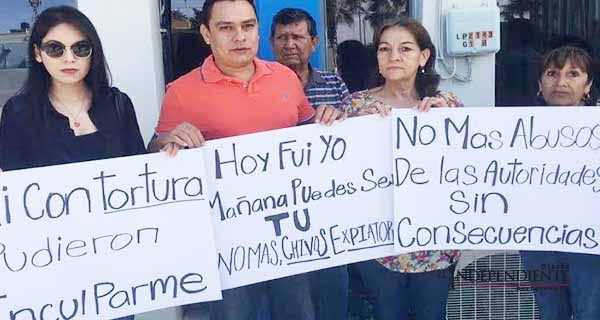 i Con tortura
pudieron
Inculparme
Hoy Fui Yo
Mañana Puedes Se
TU
NO MAS, CHIVOS EXPIATOR
No Mas Abusos
De las Autoridades
Sin
Consecuencias
INDEPENDIENTE